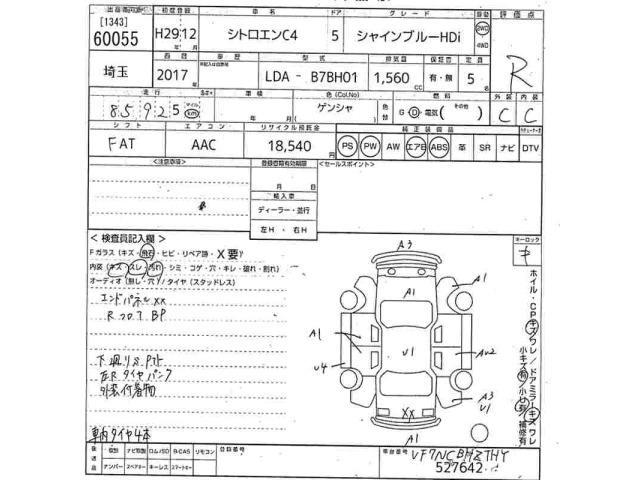 [1343]
60055
初度登録
H29 12
車名
シトロエンC4
ドア
5
グレード
シャインブルーHDi
2WD
4WD
評価点
R
埼玉
2017
年
車歴
型式
LDA - B7BH01
排気量
1,560
CC
保証書
有・無
定員
5
走行
85925
マイル
km
車検
年 月
色(Col,No)
ゲンシャ
色替
燃料
G D 電気 ( その他 )
外装
C
内装
C
シフト
FAT
エアコン
AAC
リサイクル預託金
18,540
円
純正装備品
PS PW AW エアB ABS 革 SR ナビ DTV
<注意事項>
登録書類有効期限
月 日
輸入車
ディーラー・並行
左H ・ 右H
<セールスポイント>
<検査員記入欄>
Fガラス (キズ・飛石・ヒビ・リペア跡・X要)
内装 (キズ・スレ・汚れ・シミ・コゲ・穴・キレ・破れ・割れ)
オーディオ (無し・穴) / タイヤ (スタッドレス)
エンドパネルXX
Rフロア BP
下廻りSアト
左Rタイヤパンク
外装付着物
車内タイヤ4本
A3
A1
A1
A1
U4
U1
AU2
A3
U1
XX
A1
キーロック
キ
ホイル・CPキズワレ/ドアミラーキズワレ
小キズ有/小U有/補修有
登録番号
車台番号
VF7NCBHZTHY
527642